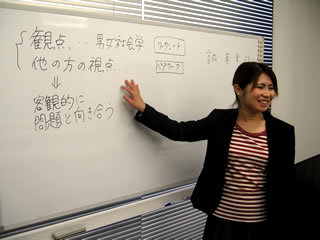 観点、… 男女社会学
ワークシート
他の方の視点…
ペアワーク
⇓
客観的に
問題と向き合う